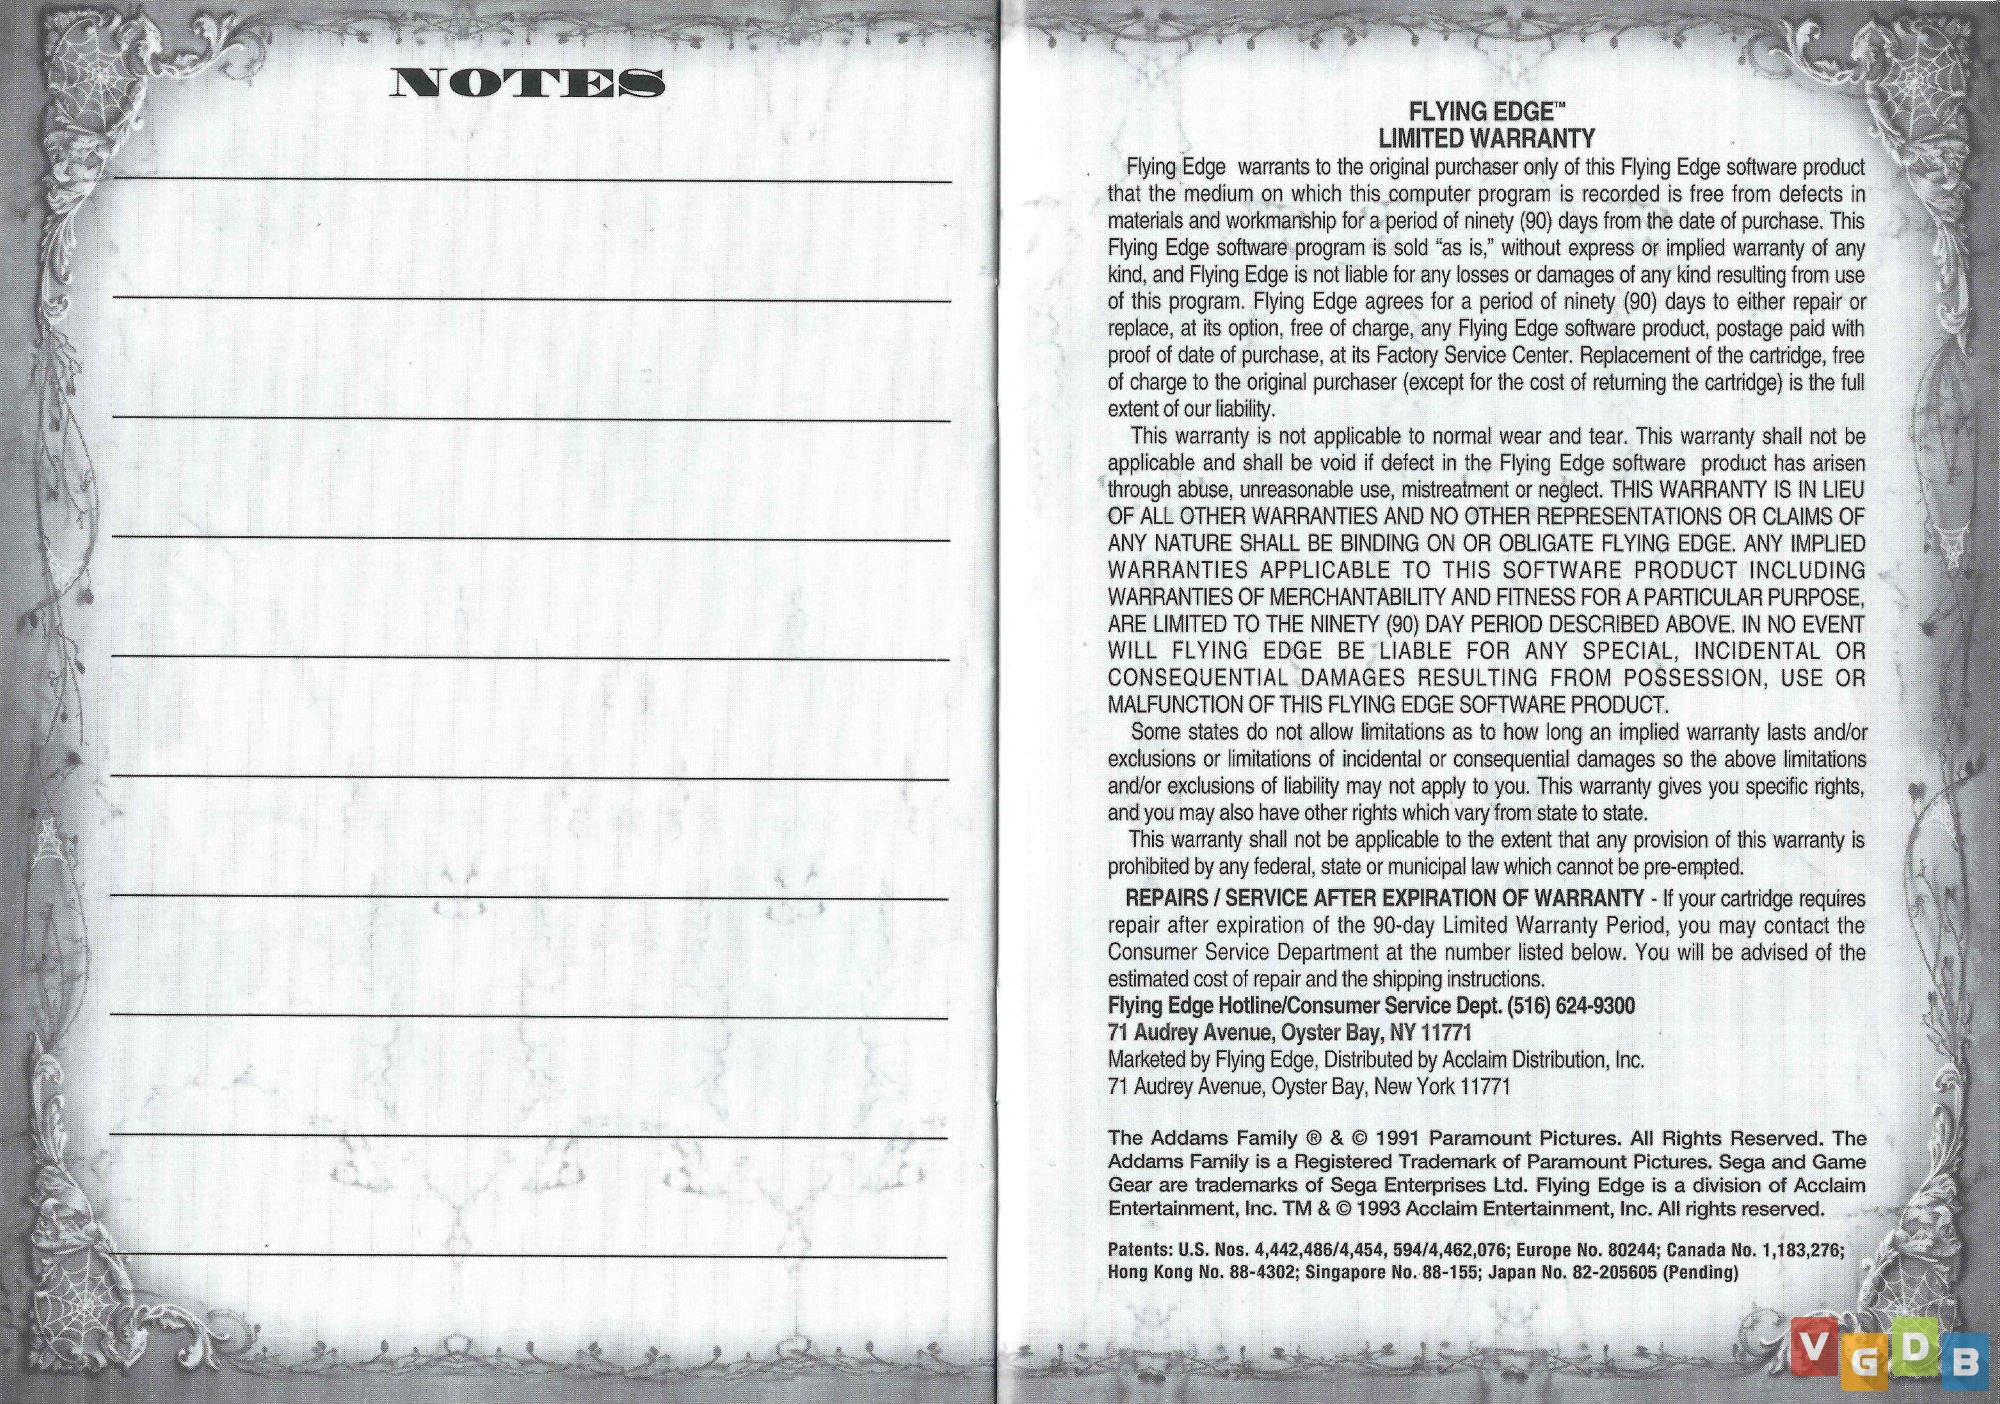 NOTES
FLYING EDGE™
LIMITED WARRANTY
Flying Edge warrants to the original purchaser only of this Flying Edge software product
that the medium on which this computer program is recorded is free from defects in
materials and workmanship for a period of ninety (90) days from the date of purchase. This
Flying Edge software program is sold “as is,” without express or implied warranty of any
kind, and Flying Edge is not liable for any losses or damages of any kind resulting from use
of this program. Flying Edge agrees for a period of ninety (90) days to either repair or
replace, at its option, free of charge, any Flying Edge software product, postage paid with
proof of date of purchase, at its Factory Service Center. Replacement of the cartridge, free
of charge to the original purchaser (except for the cost of returning the cartridge) is the full
extent of our liability.
This warranty is not applicable to normal wear and tear. This warranty shall not be
applicable and shall be void if defect in the Flying Edge software product has arisen
through abuse, unreasonable use, mistreatment or neglect. THIS WARRANTY IS IN LIEU
OF ALL OTHER WARRANTIES AND NO OTHER REPRESENTATIONS OR CLAIMS OF
ANY NATURE SHALL BE BINDING ON OR OBLIGATE FLYING EDGE. ANY IMPLIED
WARRANTIES APPLICABLE TO THIS SOFTWARE PRODUCT INCLUDING
WARRANTIES OF MERCHANTABILITY AND FITNESS FOR A PARTICULAR PURPOSE,
ARE LIMITED TO THE NINETY (90) DAY PERIOD DESCRIBED ABOVE. IN NO EVENT
WILL FLYING EDGE BE LIABLE FOR ANY SPECIAL, INCIDENTAL OR
CONSEQUENTIAL DAMAGES RESULTING FROM POSSESSION, USE OR
MALFUNCTION OF THIS FLYING EDGE SOFTWARE PRODUCT.
Some states do not allow limitations as to how long an implied warranty lasts and/or
exclusions or limitations of incidental or consequential damages so the above limitations
and/or exclusions of liability may not apply to you. This warranty gives you specific rights,
and you may also have other rights which vary from state to state.
This warranty shall not be applicable to the extent that any provision of this warranty is
prohibited by any federal, state or municipal law which cannot be pre-empted.
REPAIRS / SERVICE AFTER EXPIRATION OF WARRANTY - If your cartridge requires
repair after expiration of the 90-day Limited Warranty Period, you may contact the
Consumer Service Department at the number listed below. You will be advised of the
estimated cost of repair and the shipping instructions.
Flying Edge Hotline/Consumer Service Dept. (516) 624-9300
71 Audrey Avenue, Oyster Bay, NY 11771
Marketed by Flying Edge, Distributed by Acclaim Distribution, Inc.
71 Audrey Avenue, Oyster Bay, New York 11771
The Addams Family ® & © 1991 Paramount Pictures. All Rights Reserved. The
Addams Family is a Registered Trademark of Paramount Pictures. Sega and Game
Gear are trademarks of Sega Enterprises Ltd. Flying Edge is a division of Acclaim
Entertainment, Inc. TM & © 1993 Acclaim Entertainment, Inc. All rights reserved.
Patents: U.S. Nos. 4,442,486/4,454, 594/4,462,076; Europe No. 80244; Canada No. 1,183,276;
Hong Kong No. 88-4302; Singapore No. 88-155; Japan No. 82-205605 (Pending)
VGDB